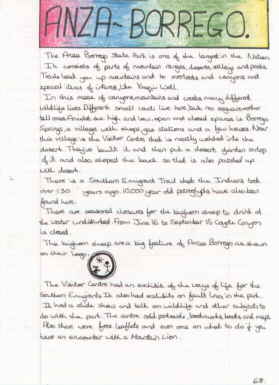 ANZA-BORREGO.
The Anza Borrego State Park is one of the largest in the Nation.
It consists of parts of mountain ranges, deserts, valleys and peaks.
Trails lead you up mountains and to overlooks and canyons and
special sites of interest, like Vallecito Well.
In this maze of canyons, mountains and washes many different
wildlife lives. Different small
high and low, open and closed spaces is Borrego
Springs, a village with shops, gas stations and a few houses. Near
this village is the Visitor Centre that is neatly welded into the
desert. They've built it and then put a desert garden on top
of it and also sloped the land so that is also padded up
with desert.
There is a Southern Emigrant Trail that the Indians took
over 130 years ago. 10,000 year old petroglyphs have also been
found here.
There are seasonal closures for the bighorn sheep to drink at
the water undisturbed. From June 16 to September 15 Coyote Canyon
is closed.
The bighorn sheep are a big feature of Anza Borrego as shown
on their logo.
The Visitor Centre had an exhibit of the ways of life for the
Southern Emigrants. It also had exhibits on fault lines in the park.
It had a slide show and talk on wildlife and other subjects to
do with the park. The centre sold postcards, bookmarks, books and maps.
Also there were free leaflets and even one on what to do if you
have an encounter with a Mountain Lion.